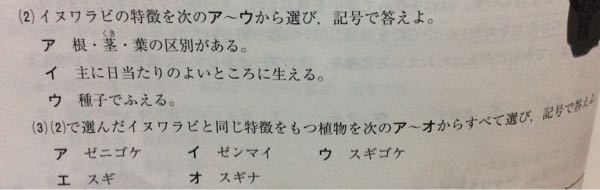 (2) イヌワラビの特徴を次のア〜ウから選び，記号で答えよ。
ア 根・茎・葉の区別がある。
くき
イ 主に日当たりのよいところに生える。
ウ 種子でふえる。
(3) (2)で選んだイヌワラビと同じ特徴をもつ植物を次のア〜オからすべて選び，記号で答えよ
ア ゼニゴケ イ ゼンマイ ウ スギゴケ
エ スギ オ スギナ